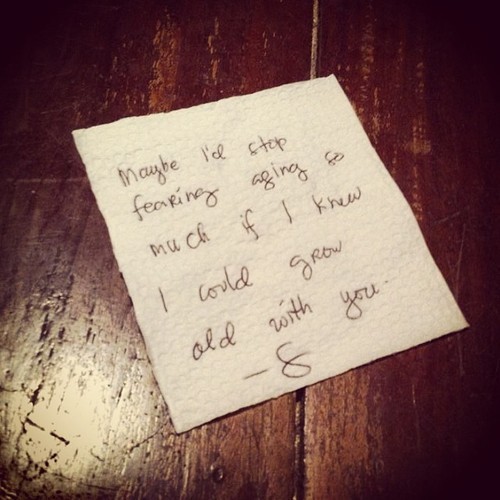 Maybe I'd stop
fearing aging so
much if I knew
I could grow
old with you.
-S